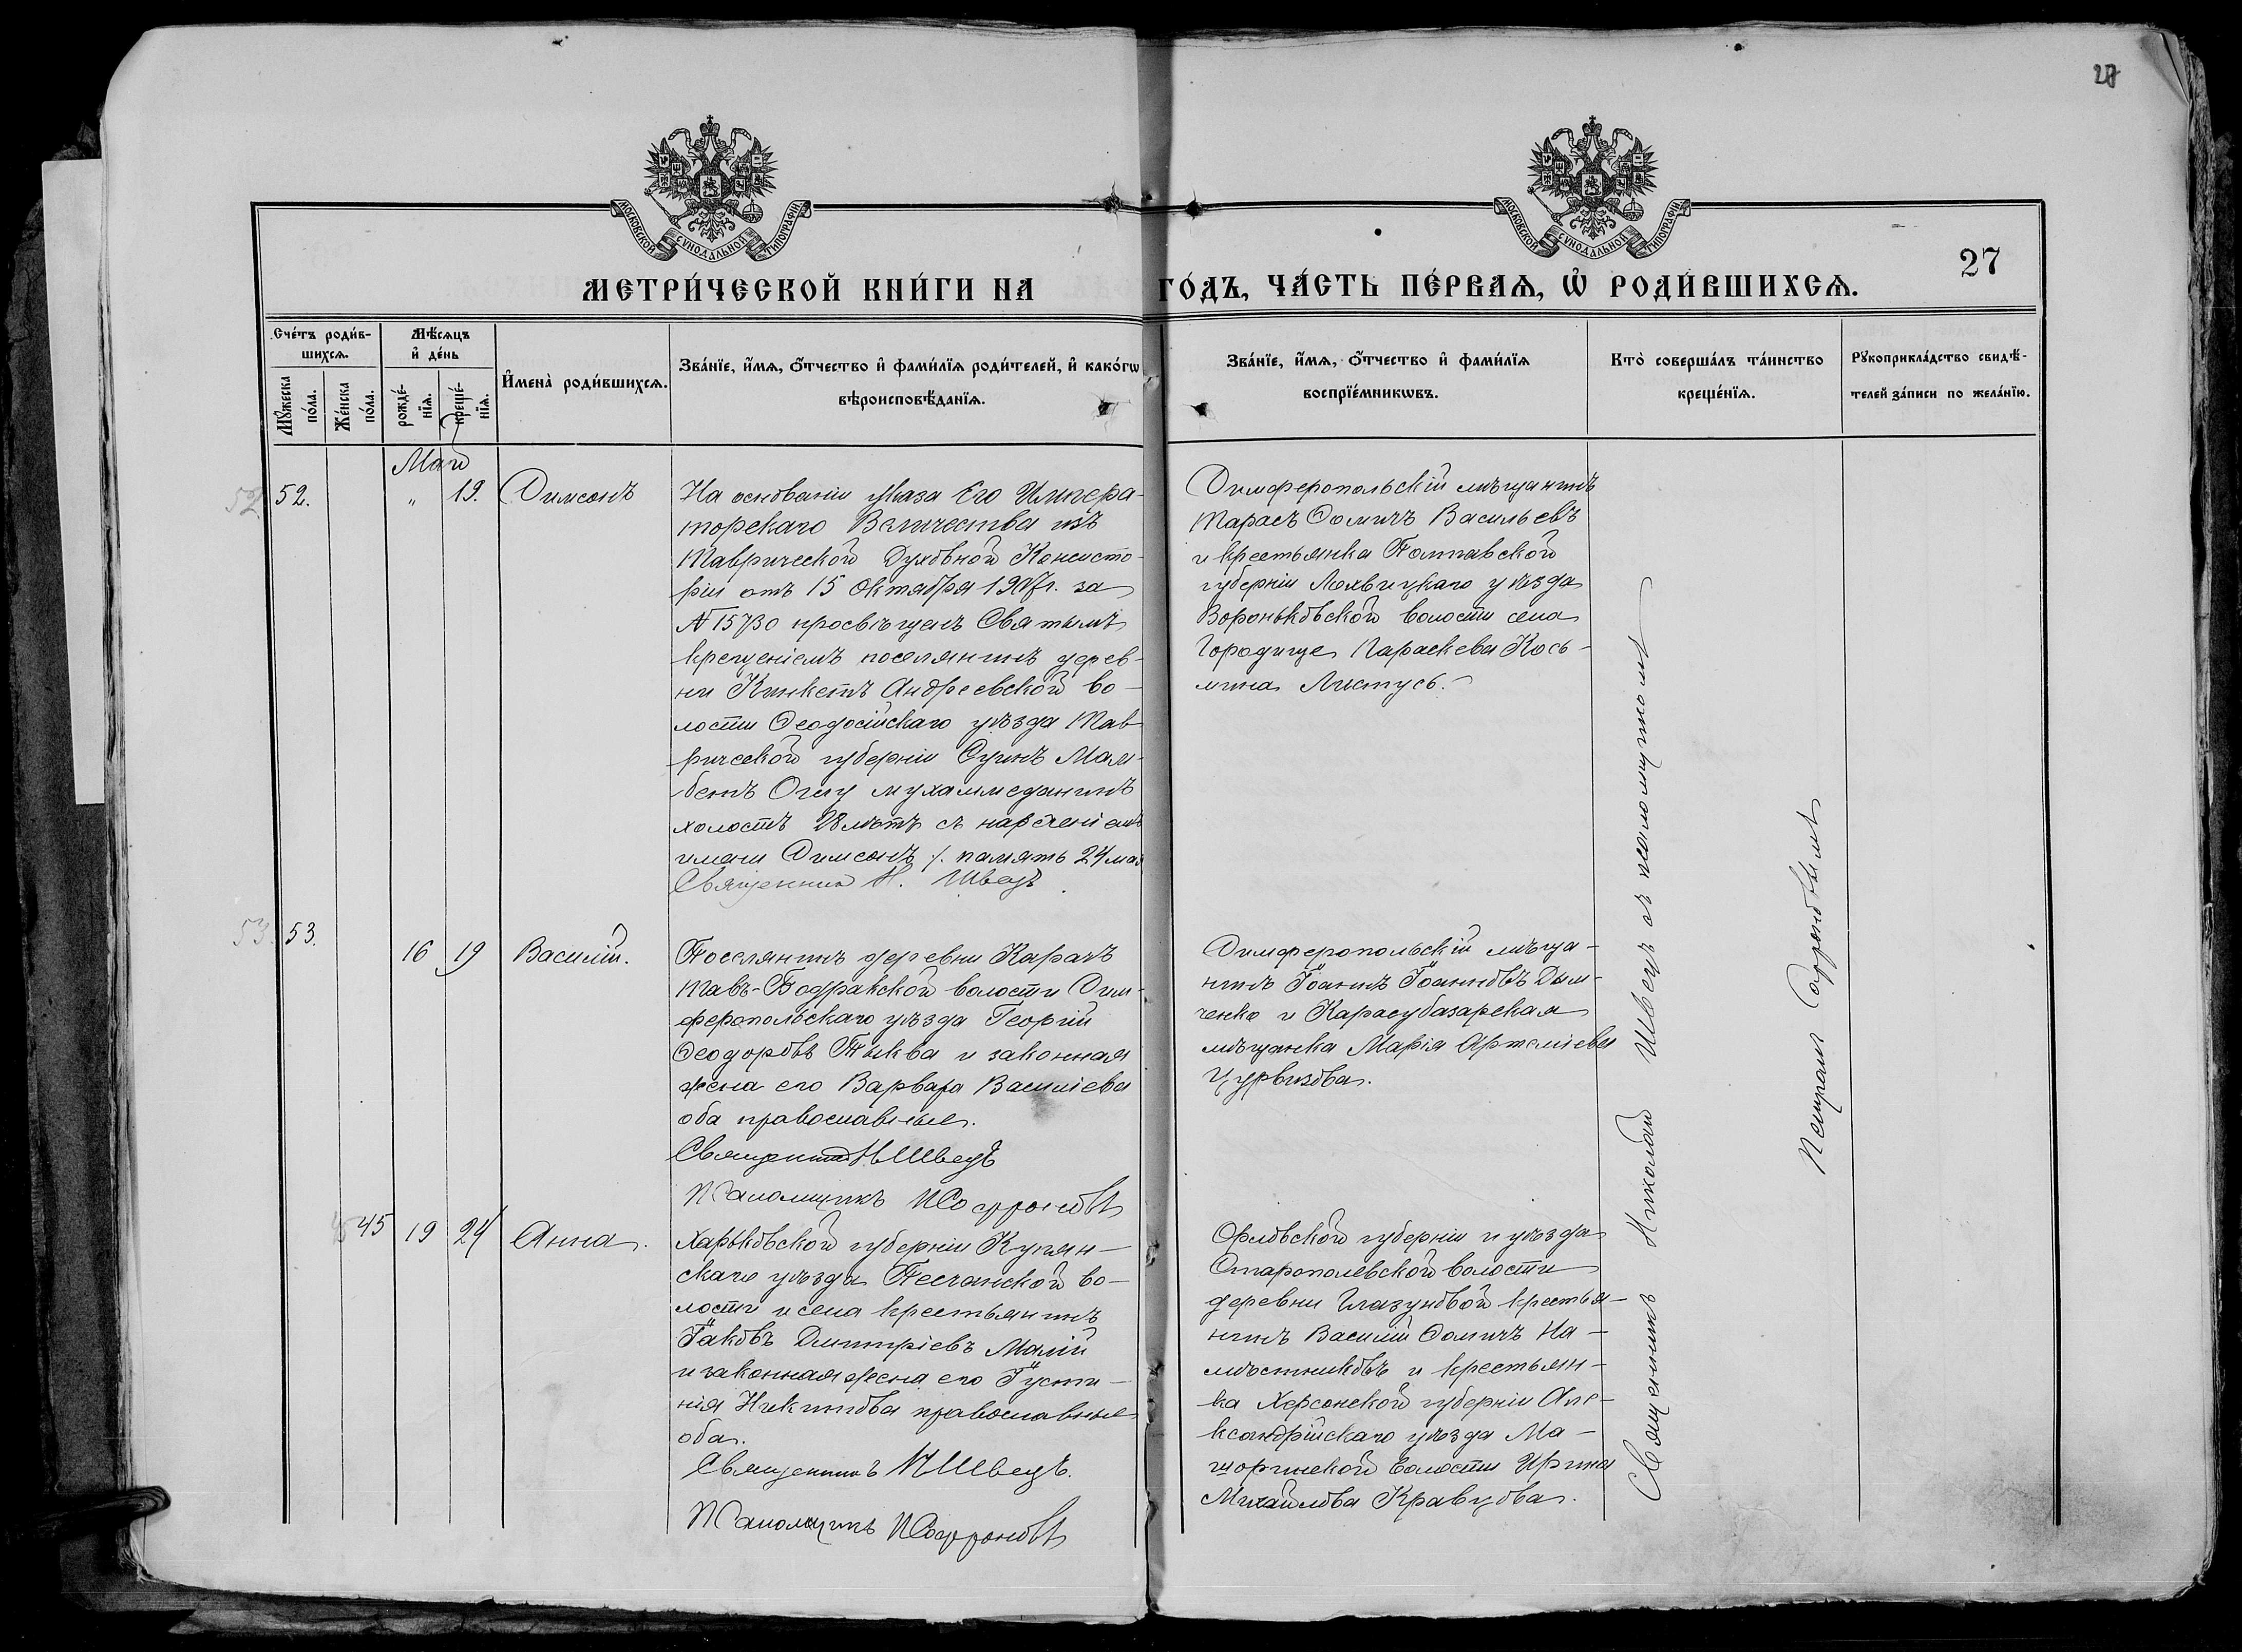 27
27
МОСКОВСКОЙ СУНОДАЛЬНОЙ ТИПОГРАФІИ
МОСКОВСКОЙ СУНОДАЛЬНОЙ ТИПОГРАФІИ
МЕТРИ́ЧЕСКОЙ КНИ́ГИ НА ГО́ДЪ, ЧА́СТЬ ПЕ́РВАѦ, Ѡ РОДИ́ВШИХСѦ.
Сче́тъ роди́в-
шихсѧ.
Мѣ́сѧцъ
и де́нь
Мꙋжеска
по́ла.
Же́нска
по́ла.
рожде́-
нїѧ.
креще́-
нїѧ.
Имена̀ роди́вшихсѧ.
Зва́нїе, и́мѧ, о́тчество и фами́лїѧ роди́телей, и како́гѡ
вѣроисповѣ́данїѧ.
Зва́нїе, и́мѧ, о́тчество и фами́лїѧ
воспрїе́мникѡвъ.
Кто̀ соверша́лъ та́инство
креще́нїѧ.
Рꙋкоприкла́дство свидѣ́-
телей за́писи по жела́нїю.
Май
52 52. " 19. Симсонъ
На основаніи Указа Его Импера-
торскаго Величества изъ
Таврической Духовной Консисто-
ріи отъ 15 Октября 1907г. за
№ 15730 просвѣщенъ Святымъ
крещеніемъ поселянинъ дерев-
ни Андреевской во-
лости Ѳеодосійскаго уѣзда Тав-
рической губерніи Мам-
бетъ Оглу мухаммеданинъ
холостъ 28 лѣтъ съ нареченіемъ
имени Симсонъ /. память 24 мая
Священникъ Н. Швецъ
Симферопольскій мѣщанинъ
Тарасъ Ѳомичъ Васильевъ
и крестьянка Полтавской
губерніи Лохвицкаго уѣзда
Вороньковской волости села
Городище Параскева Кось-
мина Листусь.
53. 53. 16 19 Василій.
Поселянинъ деревни Карачъ
Тавъ-Бодракской волости Сим-
феропольскаго уѣзда Георгій
Ѳеодоровъ Тыква и законная
жена его Варвара Василіева
оба православные.
Священникъ Н Швецъ
Псаломщикъ П Софроновъ
Симферопольскій мѣща-
нинъ Іоаннъ Іоанновъ Дым-
ченко и Карасубазарская
мѣщанка Марія Артеміева
45 45 19 24 Анна.
Харьковской губерніи Купян-
скаго уѣзда Песчанской во-
лости и села крестьянинъ
Іаковъ Димитріевъ Малій
и законная жена его Іусти-
нія Никитова православные
оба.
Священникъ Н Швецъ.
Псаломщикъ П Софроновъ
Орловской губерніи и уѣзда
Старополевской волости
деревни Глазуновой крестья-
нинъ Василій Ѳомичъ На-
мѣстниковъ и крестьян-
ка Херсонской губерніи Але-
ксандрійскаго уѣзда Ма-
шоринской волости Ирина
Михайлова Кравцова.
Священникъ Николай Швецъ съ псаломщикомъ
Петромъ Софроновымъ